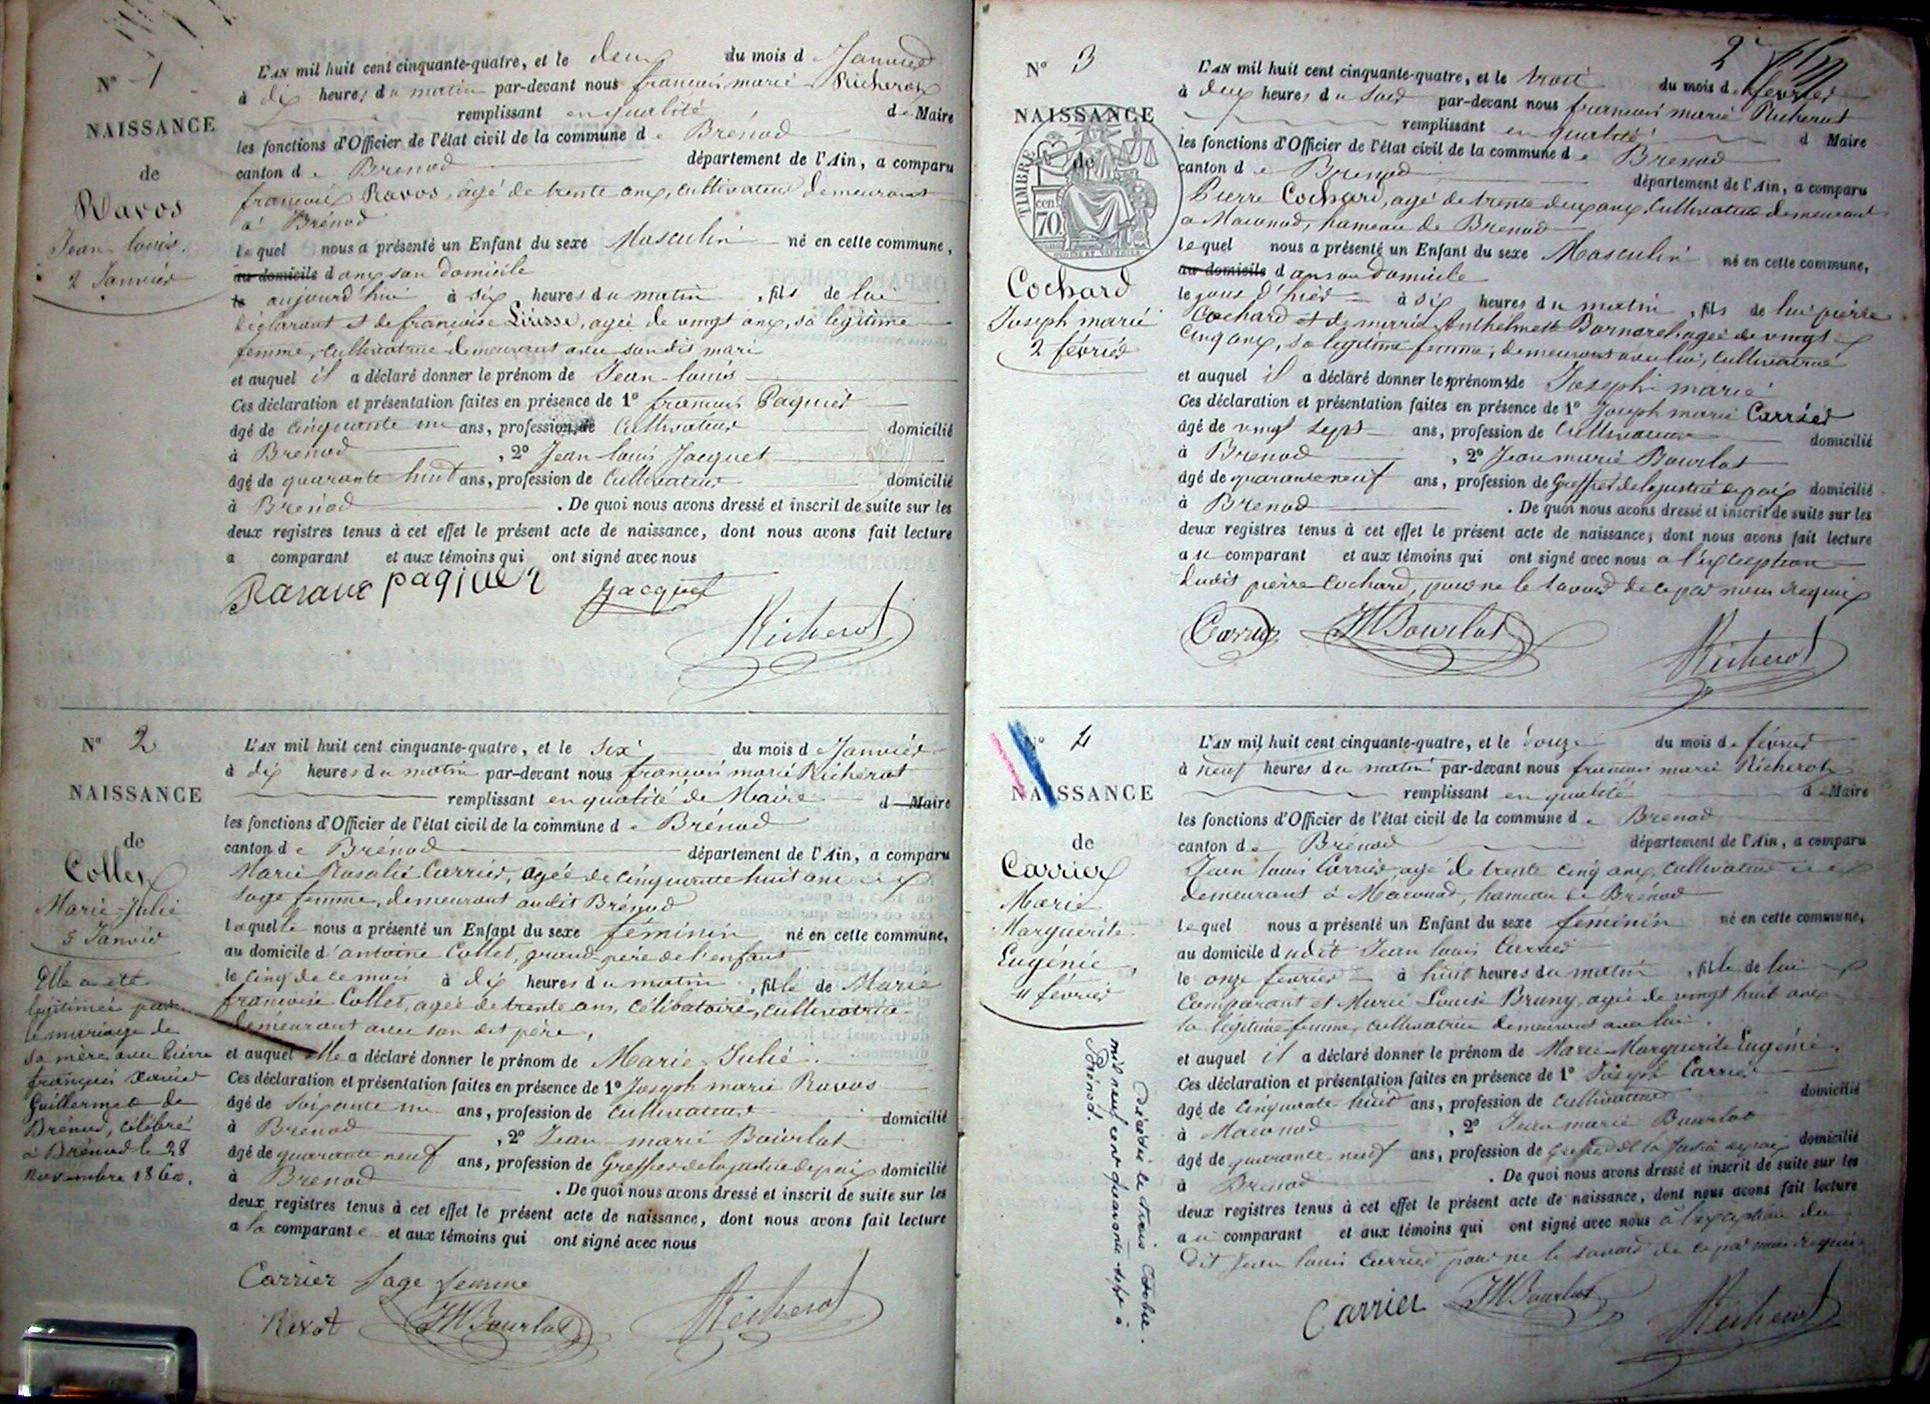 N° 1
NAISSANCE
de
Ravos
Jean louis.
2 Janvier
L'AN mil huit cent cinquante-quatre, et le deux du mois de Janvier
à dix heures du matin par-devant nous françois marie Richerot
remplissant en qualité de Maire
les fonctions d'Officier de l'état civil de la commune de Brénod
canton de Brenod département de l'Ain, a comparu
françois Ravos, âgé de trente ans, cultivateur demeurant
à Brénod
lequel nous a présenté un Enfant du sexe Masculin né en cette commune,
au domicile dans son domicile
le aujourd'hui à six heures du matin, fils de lui
déclarant et de françoise, agée de vingt ans, sa légitime
femme, cultivatrice demeurant avec son dit mari
et auquel il a déclaré donner le prénom de Jean-louis
Ces déclaration et présentation faites en présence de 1° françois Paquier
âgé de cinquante un ans, profession de Cultivateur domicilié
à Brenod, 2° Jean louis Jacquet
âgé de quarante huit ans, profession de Cultivateur domicilié
à Brénod. De quoi nous avons dressé et inscrit de suite sur les
deux registres tenus à cet effet le présent acte de naissance, dont nous avons fait lecture
a comparant et aux témoins qui ont signé avec nous
paquier Jacquet
Richerot
N° 2
NAISSANCE
de
Collet
Marie-Julie
5 Janvier
Elle a été
légitimée par
le mariage de
sa mère avec Pierre
françois xavier
Guillermet de
Brenod, célébré
à Brénod le 28
novembre 1860.
L'AN mil huit cent cinquante-quatre, et le six du mois de Janvier
à dix heures du matin par-devant nous françois marie Richerot
remplissant en qualité de Maire d Maire
les fonctions d'Officier de l'état civil de la commune de Brénod
canton de Brenod département de l'Ain, a comparu
Marie Rosalie Carrier, agée de cinquante huit ans
sage femme, demeurant audit Brénod
lequelle nous a présenté un Enfant du sexe féminin né en cette commune,
au domicile d'antoine Collet, grand père de l'enfant
le cinq de ce mois à dix heures du matin, fille de Marie
françoise Collet, agée de trente ans, célibataire, cultivatrice
demeurant avec son dit père,
et auquel elle a déclaré donner le prénom de Marie Julie.
Ces déclaration et présentation faites en présence de 1° Joseph marie Ravos
âgé de soixante un ans, profession de Cultivateur domicilié
à Brenod, 2° Jean marie Bourlat
âgé de quarante neuf ans, profession de Greffier de la justice de paix domicilié
à Brenod. De quoi nous avons dressé et inscrit de suite sur les
deux registres tenus à cet effet le présent acte de naissance, dont nous avons fait lecture
a la comparante et aux témoins qui ont signé avec nous
Carrier Sage femme
JM Bourlat Richerot
2
N° 3
NAISSANCE
de
TIMBRE
70 cen
Cochard
Joseph marie
2 février
L'AN mil huit cent cinquante-quatre, et le trois du mois de février
à deux heures du soir par-devant nous françois marie Richerot
remplissant en qualité d Maire
les fonctions d'Officier de l'état civil de la commune de Brenod
canton de Brenod département de l'Ain, a comparu
Pierre Cochard, agé de trente deux ans, Cultivateur demeurant
a Maconod, hameau de Brenod
lequel nous a présenté un Enfant du sexe Masculin né en cette commune,
au domicile dans son domicile
le jour d'hier à six heures du matin, fils de lui pierre
Cochard et de marie Anthelmette agée de vingt
cinq ans, sa légitime femme, demeurant avec lui, cultivatrice
et auquel il a déclaré donner les prénoms de Joseph marie
Ces déclaration et présentation faites en présence de 1° Joseph marie Carrier
âgé de vingt sept ans, profession de Cultivateur domicilié
à Brenod, 2° Jean marie Bourlat
âgé de quarante neuf ans, profession de Greffier de la justice de paix domicilié
à Brenod. De quoi nous avons dressé et inscrit de suite sur les
deux registres tenus à cet effet le présent acte de naissance, dont nous avons fait lecture
au comparant et aux témoins qui ont signé avec nous à l'exception
dudit pierre Cochard, pour ne le savoir de ce par nous requis
Carrier JM Bourlat Richerot
N° 4
NAISSANCE
de
Carrier
Marie
Marguerite
Eugénie,
11 février
Décédée le trois octobre
mil neuf cent quarante-sept à
Brénod.
L'AN mil huit cent cinquante-quatre, et le douze du mois de février
à neuf heures du matin par-devant nous françois marie Richerot
remplissant en qualité de Maire
les fonctions d'Officier de l'état civil de la commune de Brenod
canton de Brénod département de l'Ain, a comparu
Jean louis Carrier, agé de trente cinq ans, cultivateur
demeurant à Maconod, hameau de Brénod
lequel nous a présenté un Enfant du sexe féminin né en cette commune,
au domicile dudit Jean louis Carrier
le onze février à huit heures du matin, fille de lui
Comparant et Marie Louise Bruny, agée de vingt huit ans
sa légitime femme, cultivatrice demeurant avec lui.
et auquel il a déclaré donner le prénom de Marie Marguerite Eugénie,
Ces déclaration et présentation faites en présence de 1° Joseph Carrier
âgé de cinquante huit ans, profession de cultivateur domicilié
à Maconod, 2° Jean marie Bourlat
âgé de quarante neuf ans, profession de Greffier de la Justice de paix domicilié
à Brenod. De quoi nous avons dressé et inscrit de suite sur les
deux registres tenus à cet effet le présent acte de naissance, dont nous avons fait lecture
au comparant et aux témoins qui ont signé avec nous à l'exception du
dit Jean louis Carrier pour ne le savoir de ce par nous requis
Carrier JM Bourlat Richerot